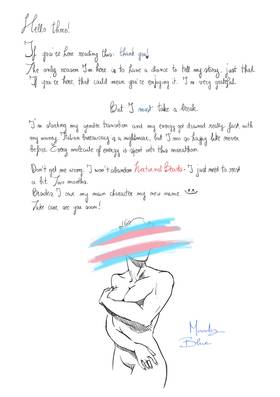 Hello there!
If you're here reading this: thank you!
The only reason I'm here is to have a chance to tell my story, just that.
If you're here, that could mean you're enjoying it. I'm very grateful.
But I must take a break.
I'm starting my gender transition and my energy get drained really fast, with
my moving. Italian bureaucracy is a nightmare, but I am so happy like never
before. Every molecule of energy is spent into this marathon.
Don't get me wrong. I won't abandon Beasts. I just need to rest
a bit. Two months.
Besides, I owe my main character my new name.
Take care, see you soon!
Moody
Blue